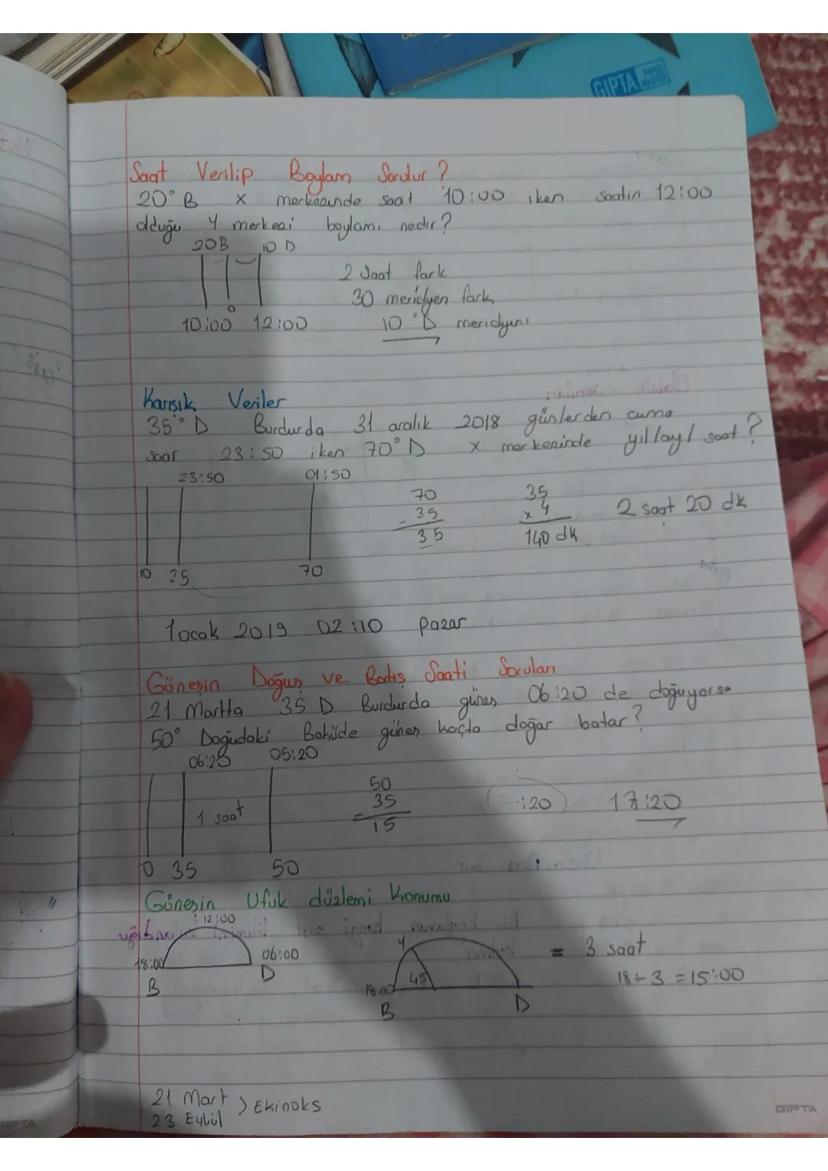 GIPTA
Saat Verilip Boylam Sordur?
20° B X merkezinde saat 10:00 iken saatin 12:00
olduğu Y merkezi boylamı nedir?
20B 10 D
0
10:00 12:00
2 Saat fark
30 meridyen fark
10 °D meridyeni
Karışık Veriler
35° D Burdurda 31 aralık 2018 günlerden cuma
saat 23:50 iken 70° D X merkezinde yıl/ay/ saat?
23:50 01:50
70
- 35
35
35
x 4
140 dk
2 saat 20 dk
0 35 70
1 ocak 2019 02:10 pazar
Güneşin Doğuş ve Batış Saati Soruları
21 Martta 35 D Burdurda güneş 06:20 de doğuyorsa
50° Doğudaki Baküde güneş kaçta doğar batar?
06:20 05:20
1 saat
50
35
15
:20 17:20
0 35 50
Güneşin Ufuk düzlemi Konumu
12:00
18:00 06:00
B D
Y
45
18:00
B D
= 3 saat
18-3 = 15:00
21 Mart
23 Eylül > Ekinoks
GIPTA